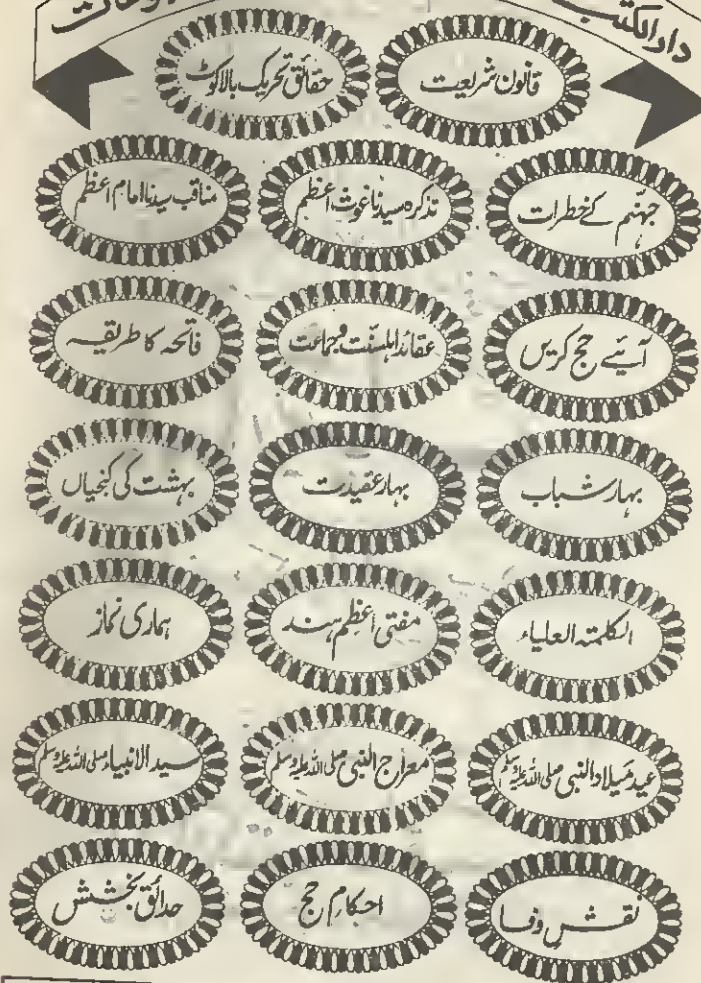 دارالکتب
قانون شریعت حقائق تحریک بالاکوٹ
جہنم کے خطرات تذکرہ سیدنا غوث اعظم مناقب سیدنا امام اعظم
آئیے حج کریں عقائد اہلسنت وجماعت فاتحہ کا طریقہ
بہار شباب بہار عقیدت بہشت کی کنجیاں
الکلمتہ العلیاء مفتی اعظم ہند ہماری نماز
عید میلاد النبی صلی اللہ علیہ وسلم معراج النبی صلی اللہ علیہ وسلم سید الانبیاء صلی اللہ علیہ وسلم
نقش وفا احکام حج حدائق بخشش